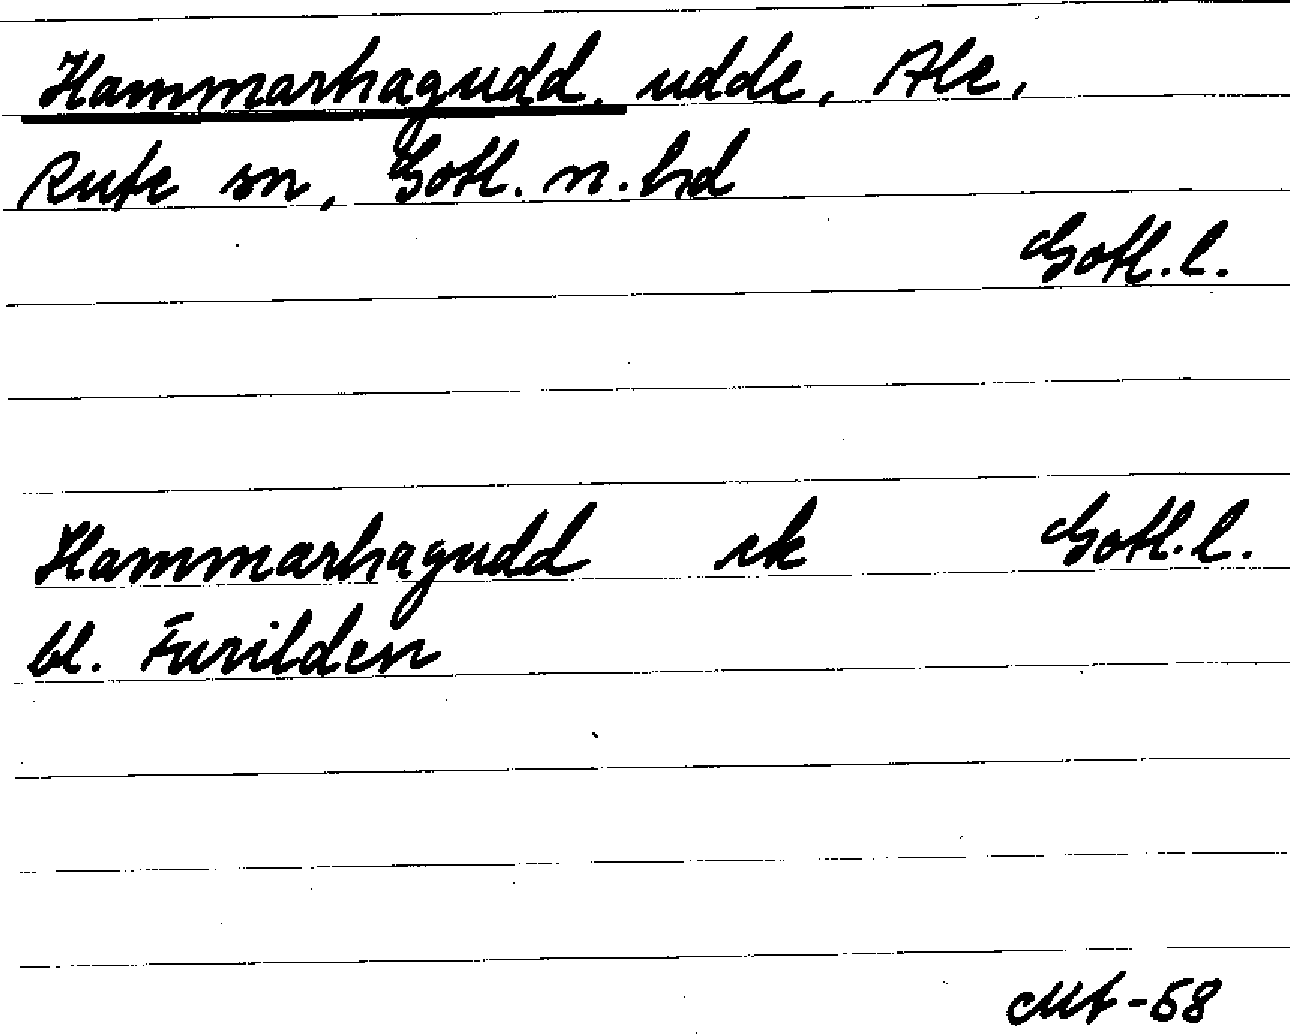 Hammarhagudd, udde, Ale,
Rute sn, Gotl. n. hd
Gotl. l.
Hammarhagudd ek Gotl. l.
bl. Furilden